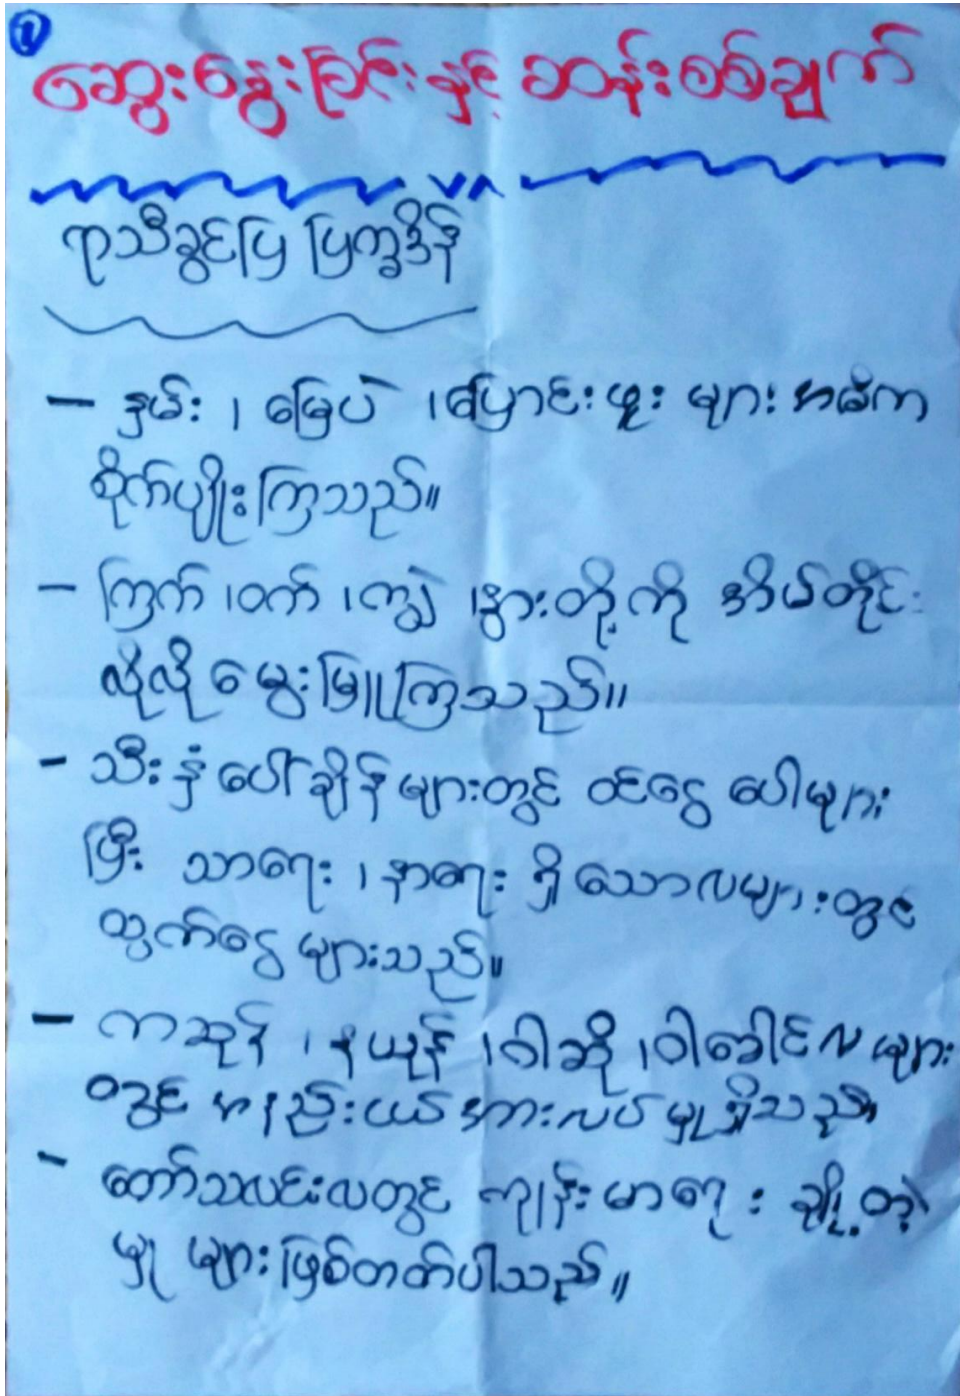 ၁
ဆွေးနွေးခြင်းနှင့် ဆန်းစစ်ချက်
ရာသီခွင်ပြ ပြက္ခဒိန်
- နှမ်း ၊ မြေပဲ ၊ ပြောင်းဖူး များ အဓိက
စိုက်ပျိုးကြသည်။
- ကြက် ၊ ဝက် ၊ ကျွဲ ၊ နွားတို့ကို အိမ်တိုင်း
လိုလို မွေးမြူကြသည်။
- သီးနှံပေါ်ချိန်များတွင် ဝင်ငွေ ပေါများ
ပြီး သာရေး ၊ နာရေး ရှိသောလများတွင်
ထွက်ငွေ များသည်။
- ကဆုန် ၊ နယုန် ၊ ဝါဆို ၊ ဝါခေါင်လ များ
တွင် အနည်းငယ် အားလပ်မှု ရှိသည်။
- တော်သလင်းလတွင် ကျန်းမာရေး ချို့တဲ့
မှု များ ဖြစ်တတ်ပါသည်။